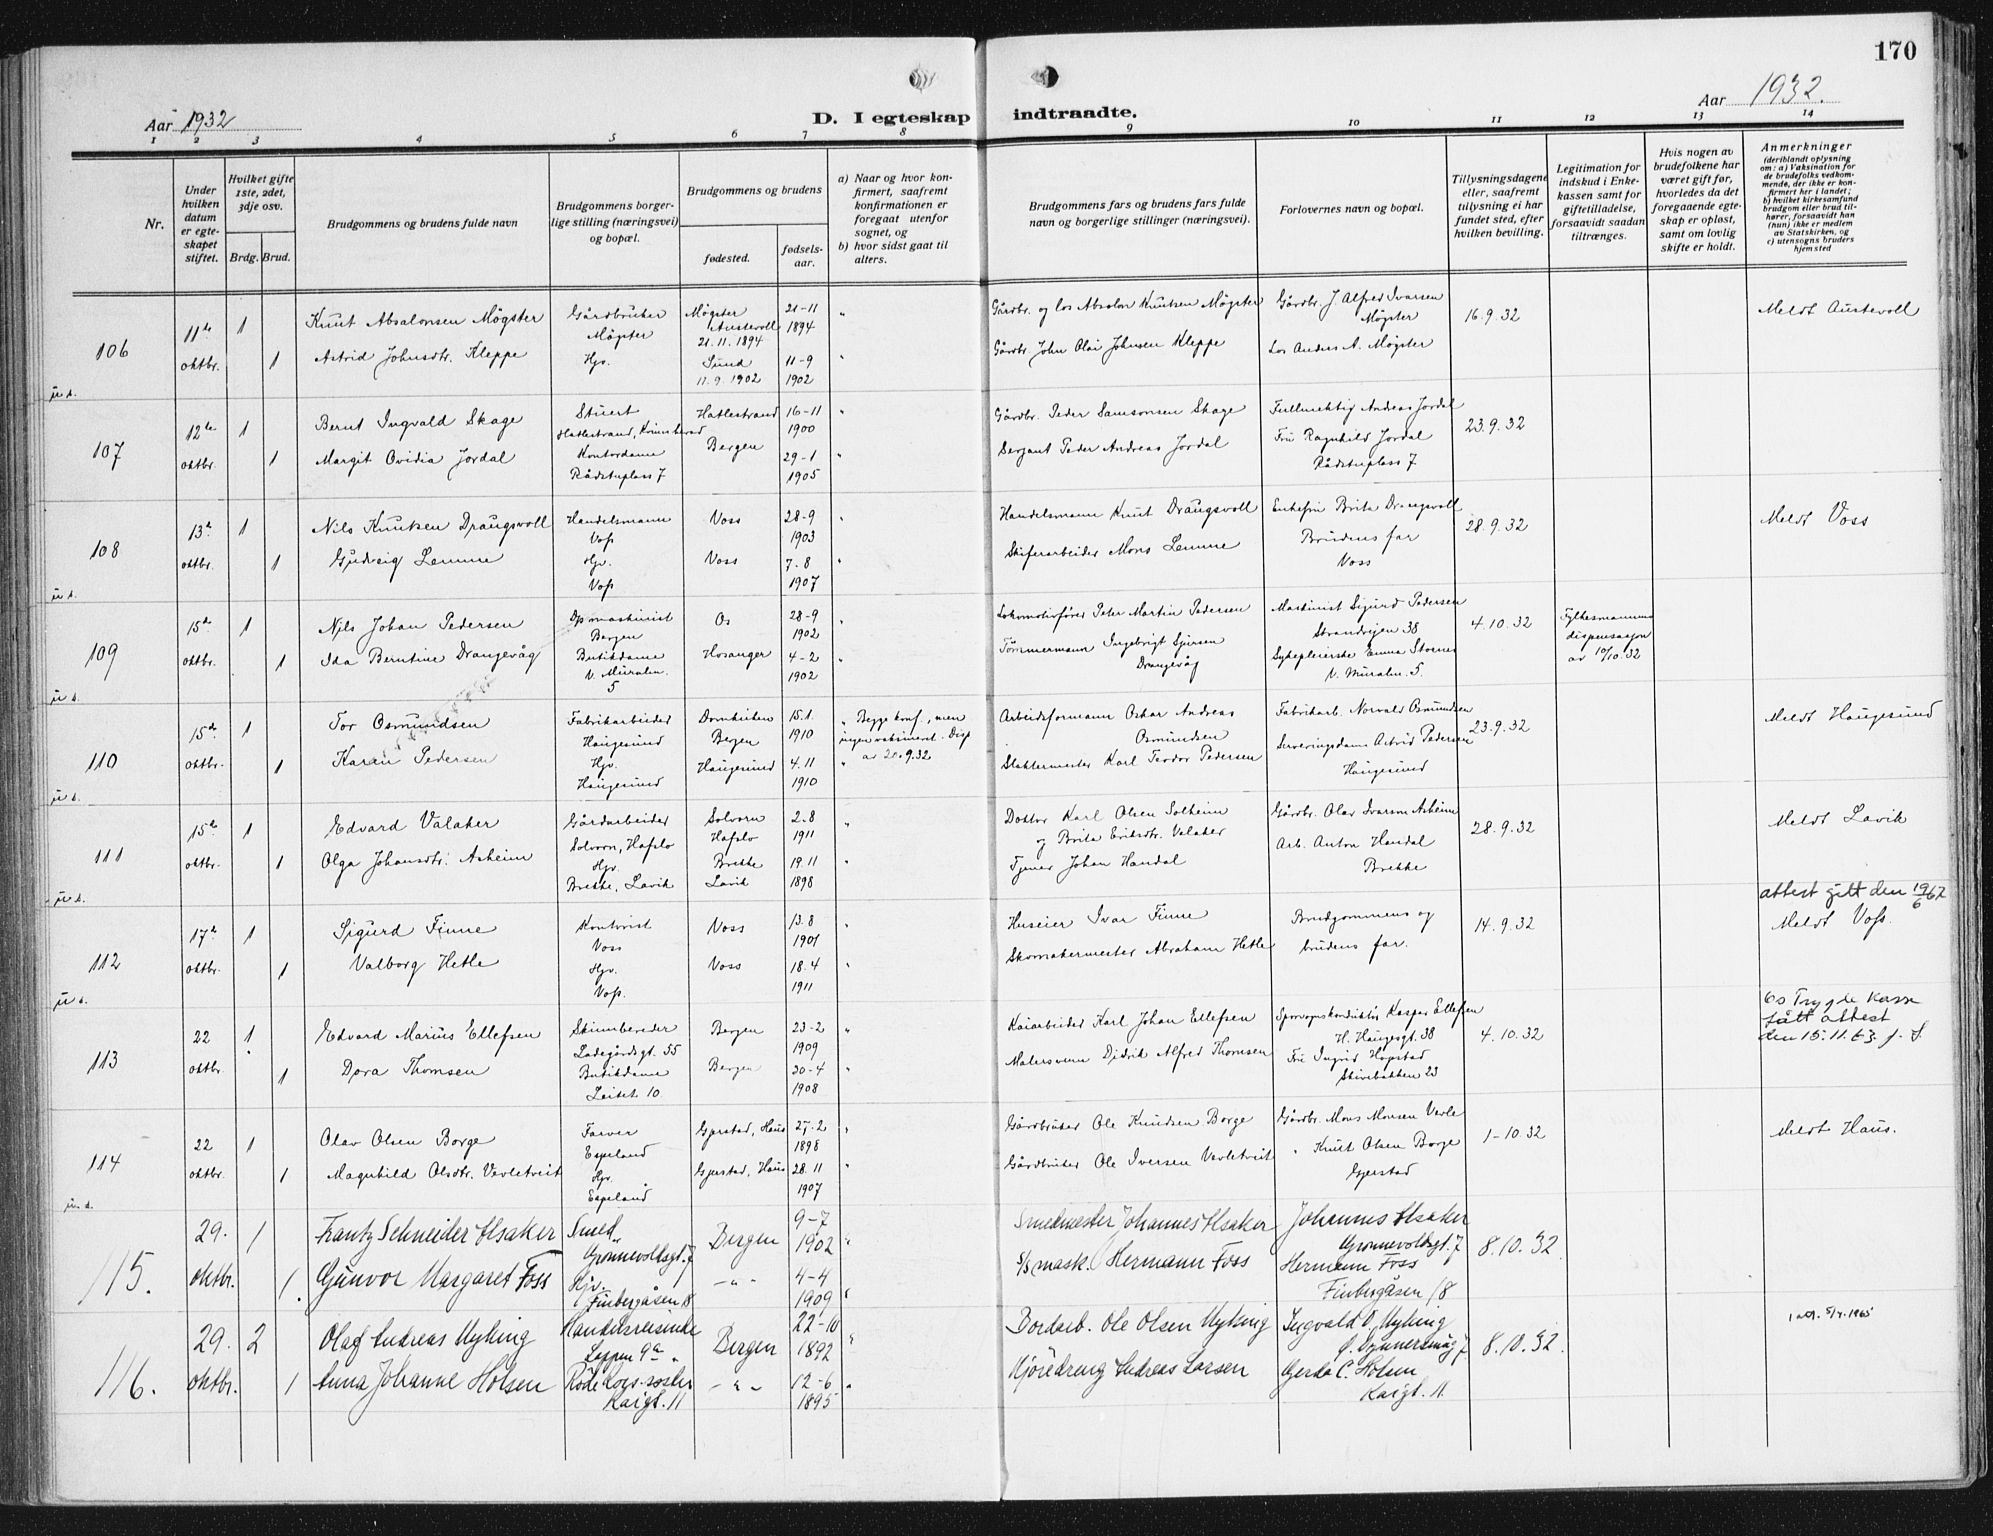 170
Aar 1932
D. I egteskap indtraadte.
Aar 1932.
1 2 3 4 5 6 7 8 9 10 11 12 13 14
Nr.
Under hvilken datum er egteskapet stiftet.
Hvilket gifte 1ste, 2det, 3dje osv.
Brdg. Brud.
Brudgommens og brudens fulde navn
Brudgommens borgerlige stilling (næringsvei) og bopæl.
Brudgommens og brudens
fødested.
fødselsaar.
a) Naar og hvor konfirmert, saafremt konfirmationen er foregaat utenfor sognet, og
b) hvor sidst gaat til alters.
Brudgommens fars og brudens fars fulde navn og borgerlige stillinger (næringsvei).
Forlovernes navn og bopæl.
Tillysningsdagene eller, saafremt tillysning ei har fundet sted, efter hvilken bevilling.
Legitimation for indskud i Enkekassen samt for giftetilladelse, forsaavidt saadan tiltrænges.
Hvis nogen av brudefolkene har været gift før, hvorledes da det foregaaende egteskap er opløst, samt om lovlig skifte er holdt.
Anmerkninger
(deriblandt oplysning om: a) Vaksination for de brudefolks vedkommende, der ikke er konfirmert her i landet; b) hvilket kirkesamfund brudgom eller brud tilhører, forsaavidt han (hun) ikke er medlem av Statskirken, og c) utensogns bruders hjemsted
106
11te oktbr.
1
1
Knut Absalonsen Møgster
Astrid Johnsdtr. Kleppe
Gårdbruker
Møgster
Hjv.
Møgster
Austevoll
21.11.1894
Sund
11.9.1902
21-11
1894
11-9
1902
Gårdbr. og los Absalon Knutsen Møgster
Gårdbr. John Olai Johnsen Kleppe
Gårdbr. J. Alfred Ivarsen
Møgster
Los Anders A. Møgster
16.9.32
Meldt Austevoll
u.s.
107
12te oktbr.
1
1
Bernt Ingvald Skage
Margit Ovidia Jordal
Stuert
Hatlestrand, Kvinnherad
Kontordame
Rådstuplass 7
Hatlestrand
Bergen
16-11
1900
29-1
1905
Gårdbr. Peder Samsonsen Skage
Sersjant Peder Andreas Jordal
Fullmektig Andreas Jordal
Fru Ragnhild Jordal
Rådstuplass 7
23.9.32
108
13de oktbr.
1
1
Nils Knutsen Draugsvoll
Gudveig Lemme
Handelsmann
Voss
Hjv.
Voss
Voss
Voss
28-9
1903
7-8
1907
Handelsmann Knut Draugsvoll
Skiferarbeider Mons Lemme
Enkefru Brita Draugsvoll
Brudens far
Voss
28.9.32
Meldt Voss
u.s.
109
15de oktbr.
1
1
Nils Johan Pedersen
Ida Berntine Drangevåg
Dpmaskinist
Bergen
Butikdame
V. Muralm.
5
Os
Hosanger
28-9
1902
4-2
1902
Lokomotivfører Peter Martin Pedersen
Tømmermann Ingebrigt Sjursen
Drangevåg
Maskinist Sigurd Pedersen
Strandveien 38
Sykepleierske Emma Stornes
V. Muralm. 5.
4.10.32
Fylkesmannens
dispensasjon
av 10/10.32
u.s.
110
15de oktbr.
1
1
Tor Osmundsen
Karen Pedersen
Fabrikarbeider
Haugesund
Hjv.
Haugesund
Domkirken
Bergen
Haugesund
15.1.
1910
4.11
1910
Begge konf., men
ingen vaksinert. Disp
av 20.9.32
Arbeidsformann Oskar Andreas
Osmundsen
Slaktermester Karl Teodor Pedersen
Fabrikarb. Norvald Osmundsen
Serveringsdame Astrid Pedersen
Haugesund
23.9.32
Meldt Haugesund
u.s.
111
15de oktbr.
1
1
Edvard Valaker
Olga Johansdtr. Asheim
Gårdarbeider
Solvorn, Hafslo
Hjv.
Brekke, Lavik
Solvorn
Hafslo
Brekke
Lavik
2-8
1911
19.11
1898
Doktor Karl Olsen Solheim
og Brita Eriksdtr. Valaker
Tjener Johan Handal
Gårdbr. Olav Ivarson Asheim
Arb. Anton Handal
Brekke
28.9.32
Meldt Lavik
u.s.
112
17de oktbr.
1
1
Sigurd Finne
Valborg Hetle
Kontorist
Voss
Hjv.
Voss.
Voss
Voss
13.8
1901
18.4
1911
Huseier Ivar Finne
Skomakermester Abraham Hetle
Brudgommens og
brudens far.
14.9.32
attest gitt den 19/6 62
Meldt Voss.
u.s.
113
22 oktbr.
1
1
Edvard Marius Ellefsen
Dora Thomsen
Skinnbereder
Ladegårdsgt. 55
Butikdame
Leitet 10.
Bergen
Bergen
23-2
1909
20-4
1908
Kaiarbeider Karl Johan Ellefsen
Malersvenn Didrik Alfred Thomsen
Sporvognskonduktør Kasper Ellefsen
H. Haugesgt. 38
Fru Ingrid Hopstad
Skivebakken 23
4.10.32
Os Trygdekasse
fått attest
den 15.11.63. J.S.
114
22 oktbr.
1
1
Olav Olsen Borge
Magnhild Olsdtr. Vevletveit
Farver
Espeland
Hjv.
Espeland
Gjerstad, Haus
Gjerstad, Haus
27.2
1898
28.11
1907
Gårdbruker Ole Knudsen Borge
Gårdbruker Ole Iversen Vevletveit
Gårdbr. Mons Monsen Vevle
" Knut Olsen Borge
Gjerstad
1-10.32
Meldt Haus.
u.s.
115.
29. oktbr.
1
1.
Frantz Schneider Isaker
Gunvor Margaret Foss
Smed
Grønnevoldsgt. 7
Hjv.
Finbergåsen 18
Bergen
- " -
9-7
1902
4-4
1909
Smedmester Johannes Isaker
S/S mask. Hermann Foss
Johannes Isaker
Grønnevoldsgt. 7
Hermann Foss
Finbergåsen 18
8.10.32
116.
29. oktbr.
2
1
Olaf Andreas Myking
Anna Johanne Holsen
Handelsreisende
Leppen 9a
Røde Kors-søster
Kaigt. 11
Bergen
- " -
22-10
1892
12-6
1895
Bordarb. Ole Olsen Myking
Kjøredreng Andreas Larsen
Ingvald O. Myking
Gerda C. Holsen
Kaigt. 11.
8.10.32.
1 att. 5/4.1965